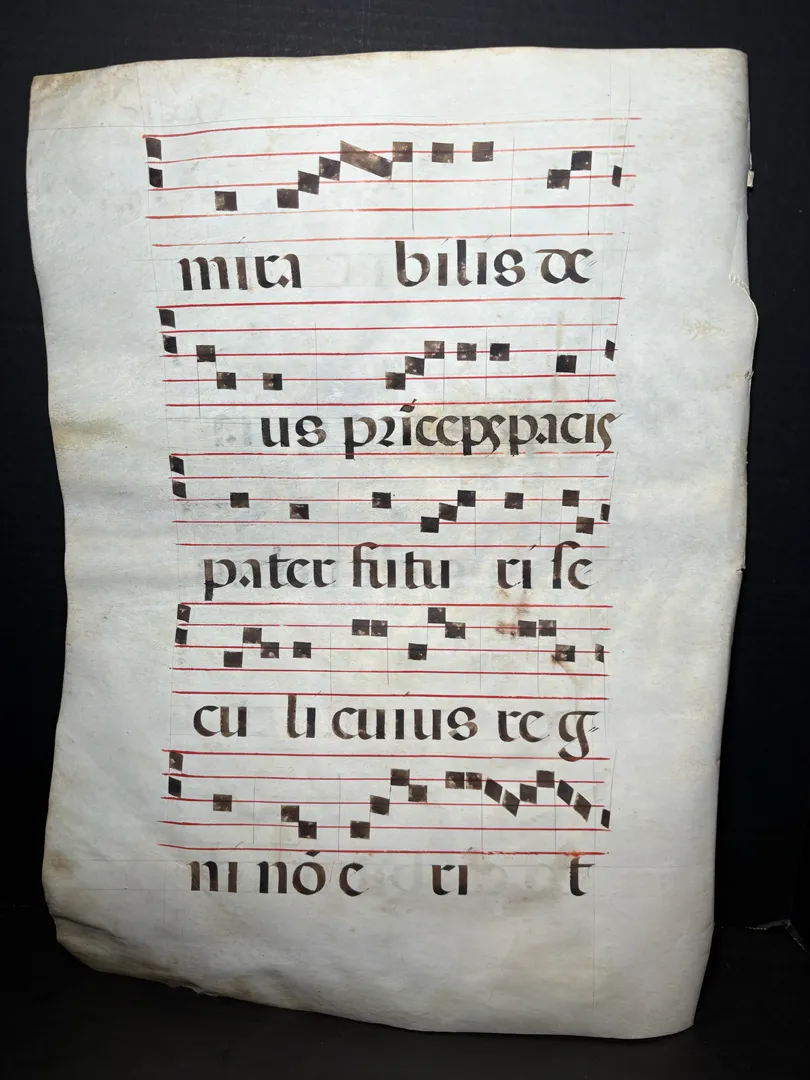 mira bilis de
us prīcepspacis
pater futu ri se
cu li cuius re g
ni nō e ri t